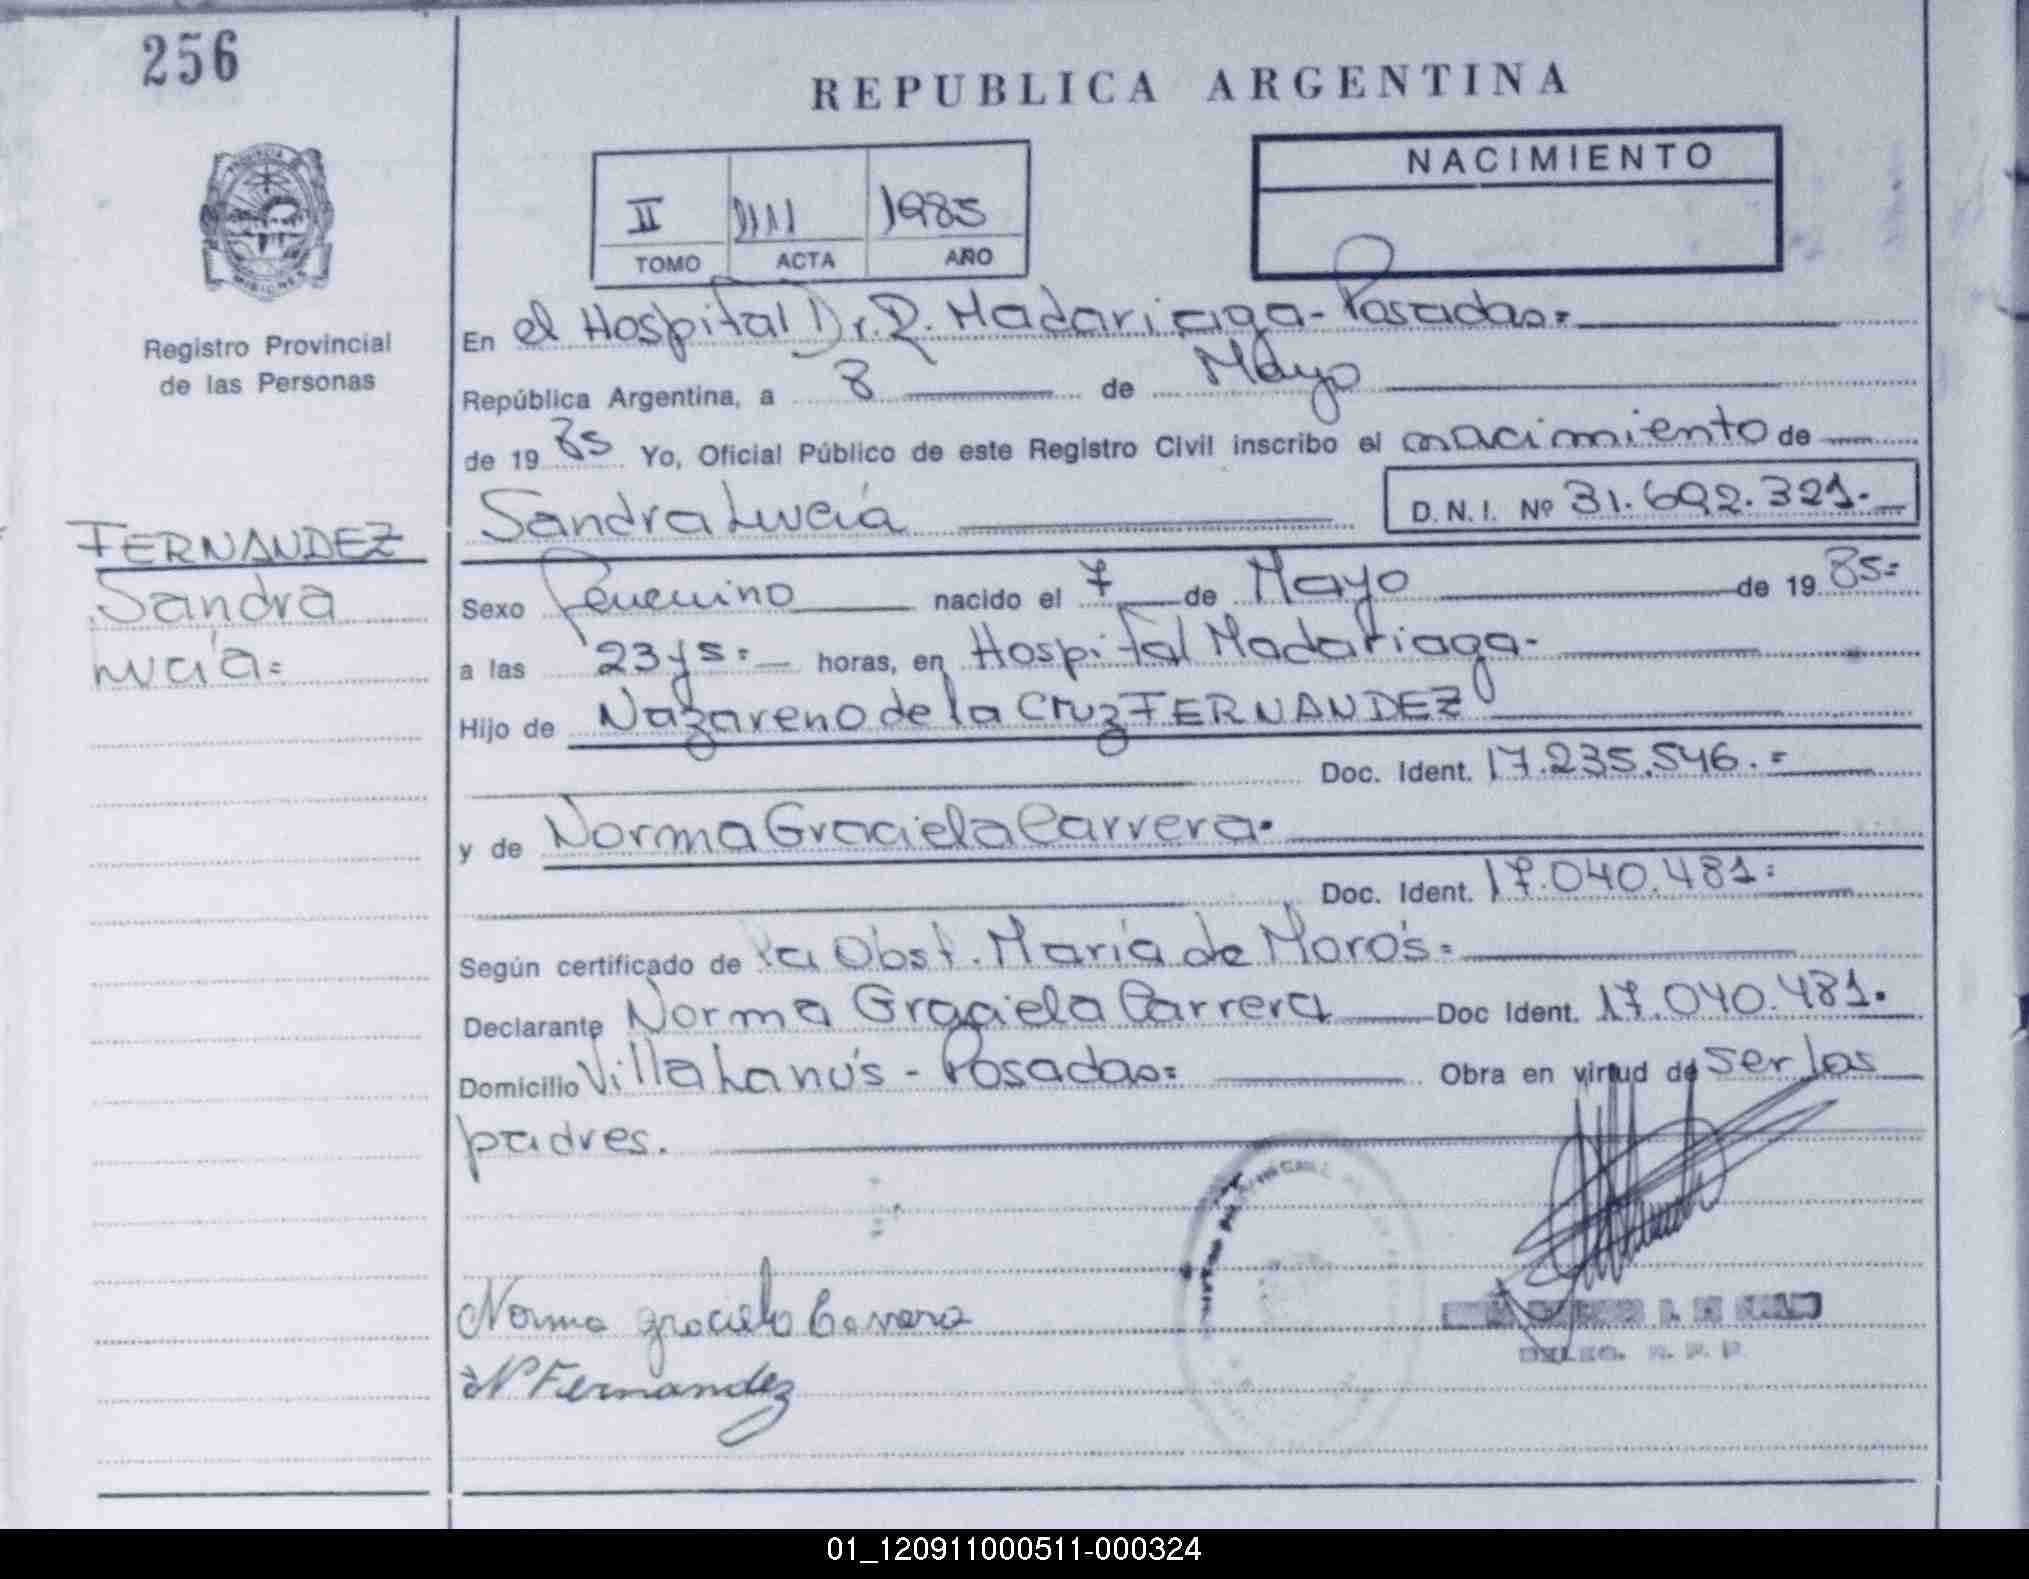 256
REPUBLICA ARGENTINA
NACIMIENTO
II 1111 1985
TOMO ACTA AÑO
PROVINCIA DE MISIONES
Registro Provincial
de las Personas
En el Hospital Dr. R. Madariaga - Posadas=
República Argentina, a 8 de Mayo
de 1985 Yo, Oficial Público de este Registro Civil inscribo el nacimiento de
Sandra Lucía D.N.I. Nº 31.692.321.-
FERNANDEZ
Sandra
Lucía=
Sexo Femenino nacido el 7 de Mayo de 1985=
a las 23 y 5=- horas, en Hospital Madariaga-
Hijo de Nazareno de la Cruz FERNANDEZ
Doc. Ident. 17.235.546.=
y de Norma Graciela Carrera.
Doc. Ident. 17.040.481=
Según certificado de la Obst. María de Moro's=
Declarante Norma Graciela Carrera Doc Ident. 17.040.481.
Domicilio Villa Lanús - Posadas= Obra en virtud de ser los
padres.
Norma graciela Carrera
N Fernandez
01_120911000511-000324